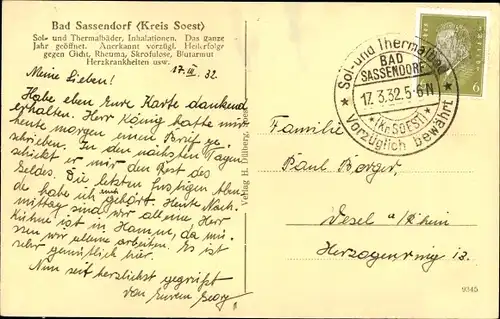 Bad Sassendorf (Kreis Soest)
Sol- und Thermalbäder, Inhalationen. Das ganze
Jahr geöffnet. Anerkannt vorzügl. Heilerfolge
gegen Gicht, Rheuma, Skrofulose, Blutarmut
Herzkrankheiten usw.
17. III. 32.
Meine Lieben!
Habe eben Eure Karte dankend
erhalten. Herr König hatte mir
heute morgen einen Brief ge-
schrieben. In den nächsten Tagen
schickt er mir den Rest des
Geldes. Die letzten lustigen Aben-
de habe ich auch gehört. Heute Nach-
mittag sind wir alleine. Herr
Kühne ist in Hamm, da müs-
sen wir alleine arbeiten. Es ist
sehr gemütlich hier.
Nun seid herzlichst gegrüßt
von Eurem Georg
Verlag H. Dülberg, Soest
Sol- und Thermalbad
BAD
SASSENDORF
17.3.32.5-6N
(Kr. SOEST)
Vorzüglich bewährt
6
Familie
Paul Berger,
Wesel a/Rhein
Herzogenring 12.
9345